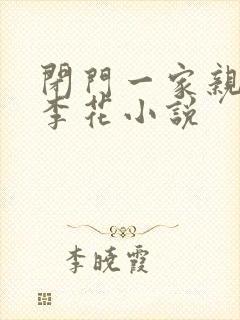 閉門一家親
李花小說
李晓霞